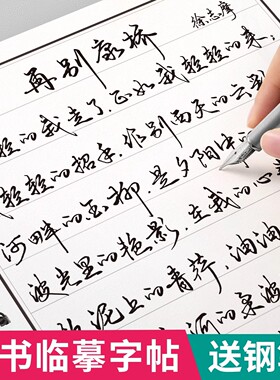 再别康桥
徐志摩
轻轻的我走了，正如我轻轻的来，
轻轻的招手，作别西天的云
河畔的金柳，是夕阳中
波光里的艳影，在我的心
泥上的青荇，油油
河的柔波
书临摹字帖
送钢